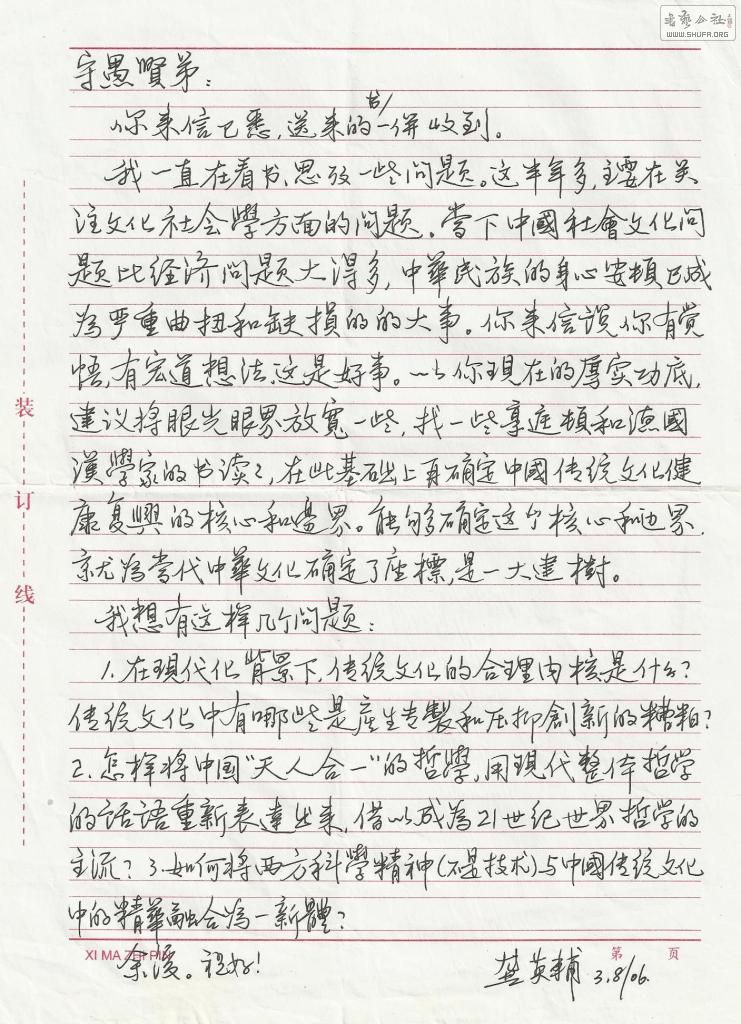 书艺公社
WWW.SHUFA.ORG
守愚賢弟：
你来信已悉，送来的书一併收到。
我一直在看书、思攷一些问题。这半年多，主要在关
注文化社会學方面的问题。當下中國社會文化问
题比经济问题大得多，中華民族的身心安頓已成
為严重曲扭和缺損的的大事。你来信谈你有觉
悟，有宏道想法，这是好事。以你现在的厚实功底，
建议将眼光眼界放寬一些，找一些亨庭頓和德國
漢學家的书读々，在此基础上再确定中國传统文化健
康复興的核心和邊界。能够确定这个核心和边界，
就為當代中華文化确定了座標，是一大建樹。
我想有这样几个问题：
1.在現代化背景下，传统文化的合理内核是什么？
传统文化中有哪些是產生专製和压抑創新的糟粕？
2.怎样将中国“天人合一”的哲學，用现代整体哲学
的话语重新表達出来，借以成為21世纪世界哲学的
主流？3.如何将西方科學精神(不是技术)与中國传统文化
中的精華融合為一新體？
余後。祝好！
龚英輔 3.8/06.
装
订
线
XI MA ZHI PIN
第 页